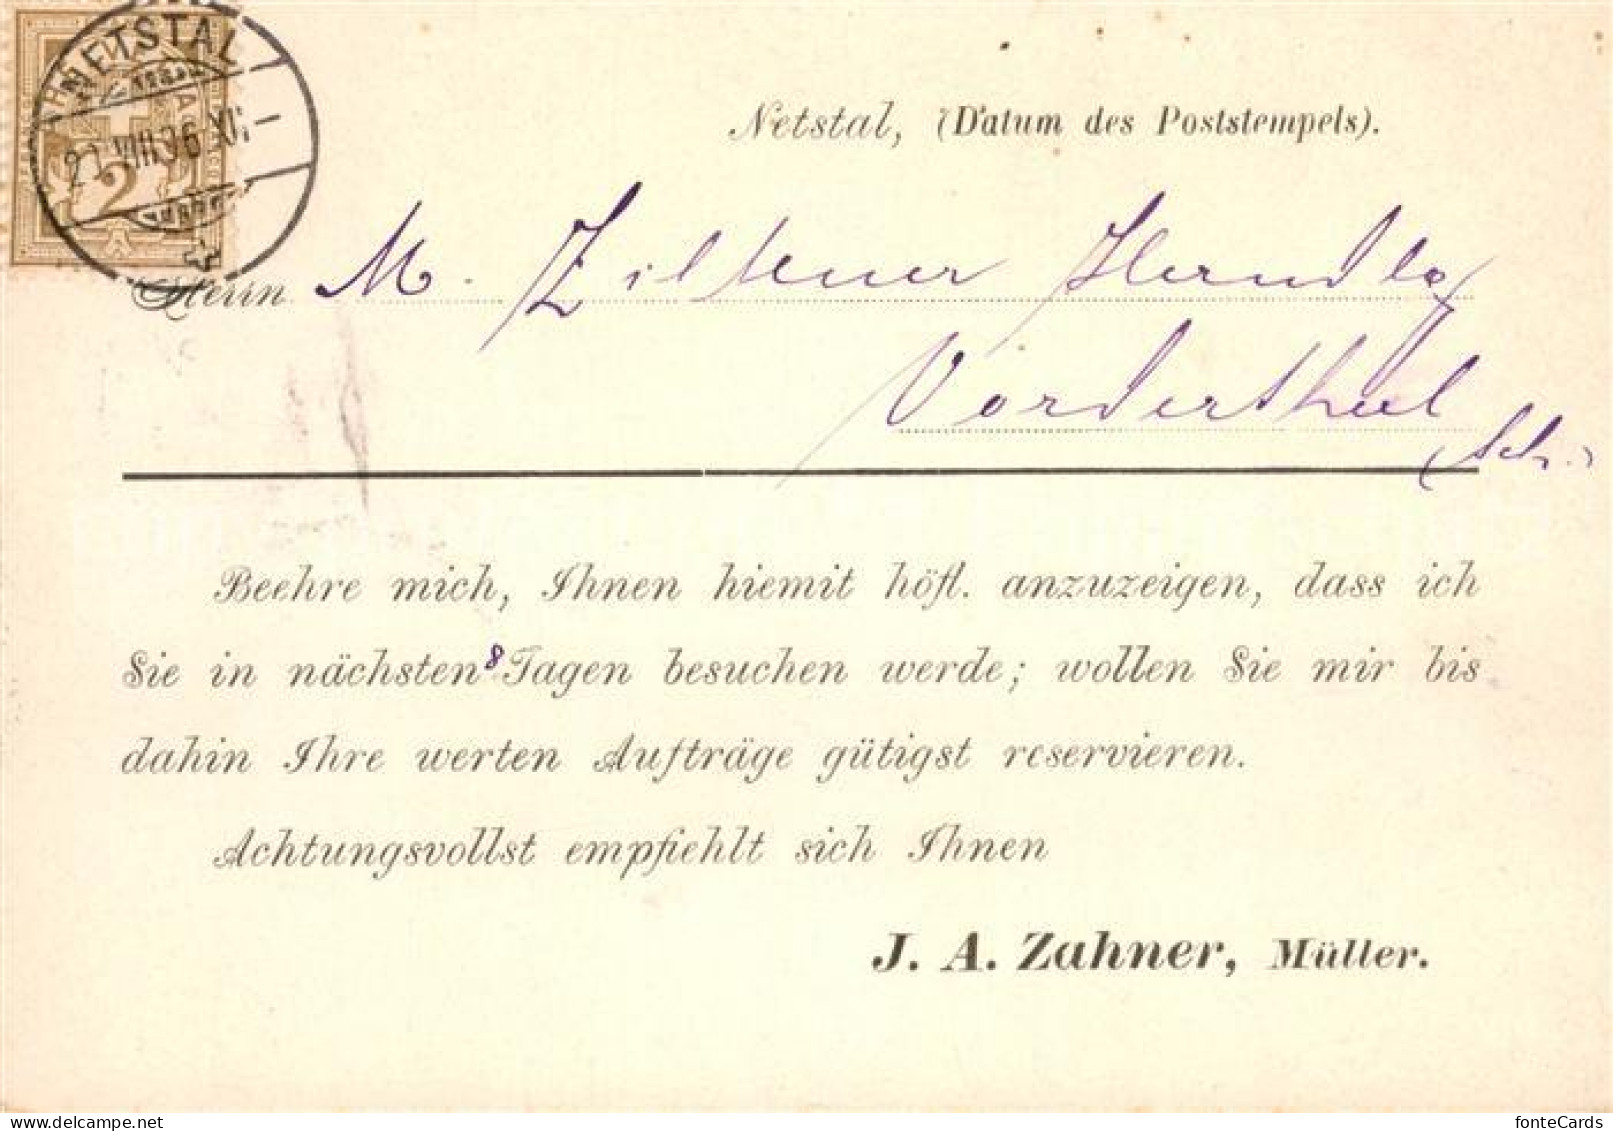 NETSTAL
21.VIII.96.XI
2
Netstal, (Datum des Poststempels).
Herrn M. Ziltener Handlg
Vorderthal
(Sch.)
Beehre mich, Ihnen hiemit höfl. anzuzeigen, dass ich
Sie in nächsten 8 Tagen besuchen werde; wollen Sie mir bis
dahin Ihre werten Aufträge gütigst reservieren.
Achtungsvollst empfiehlt sich Ihnen
J. A. Zahner, Müller.
fonteCards